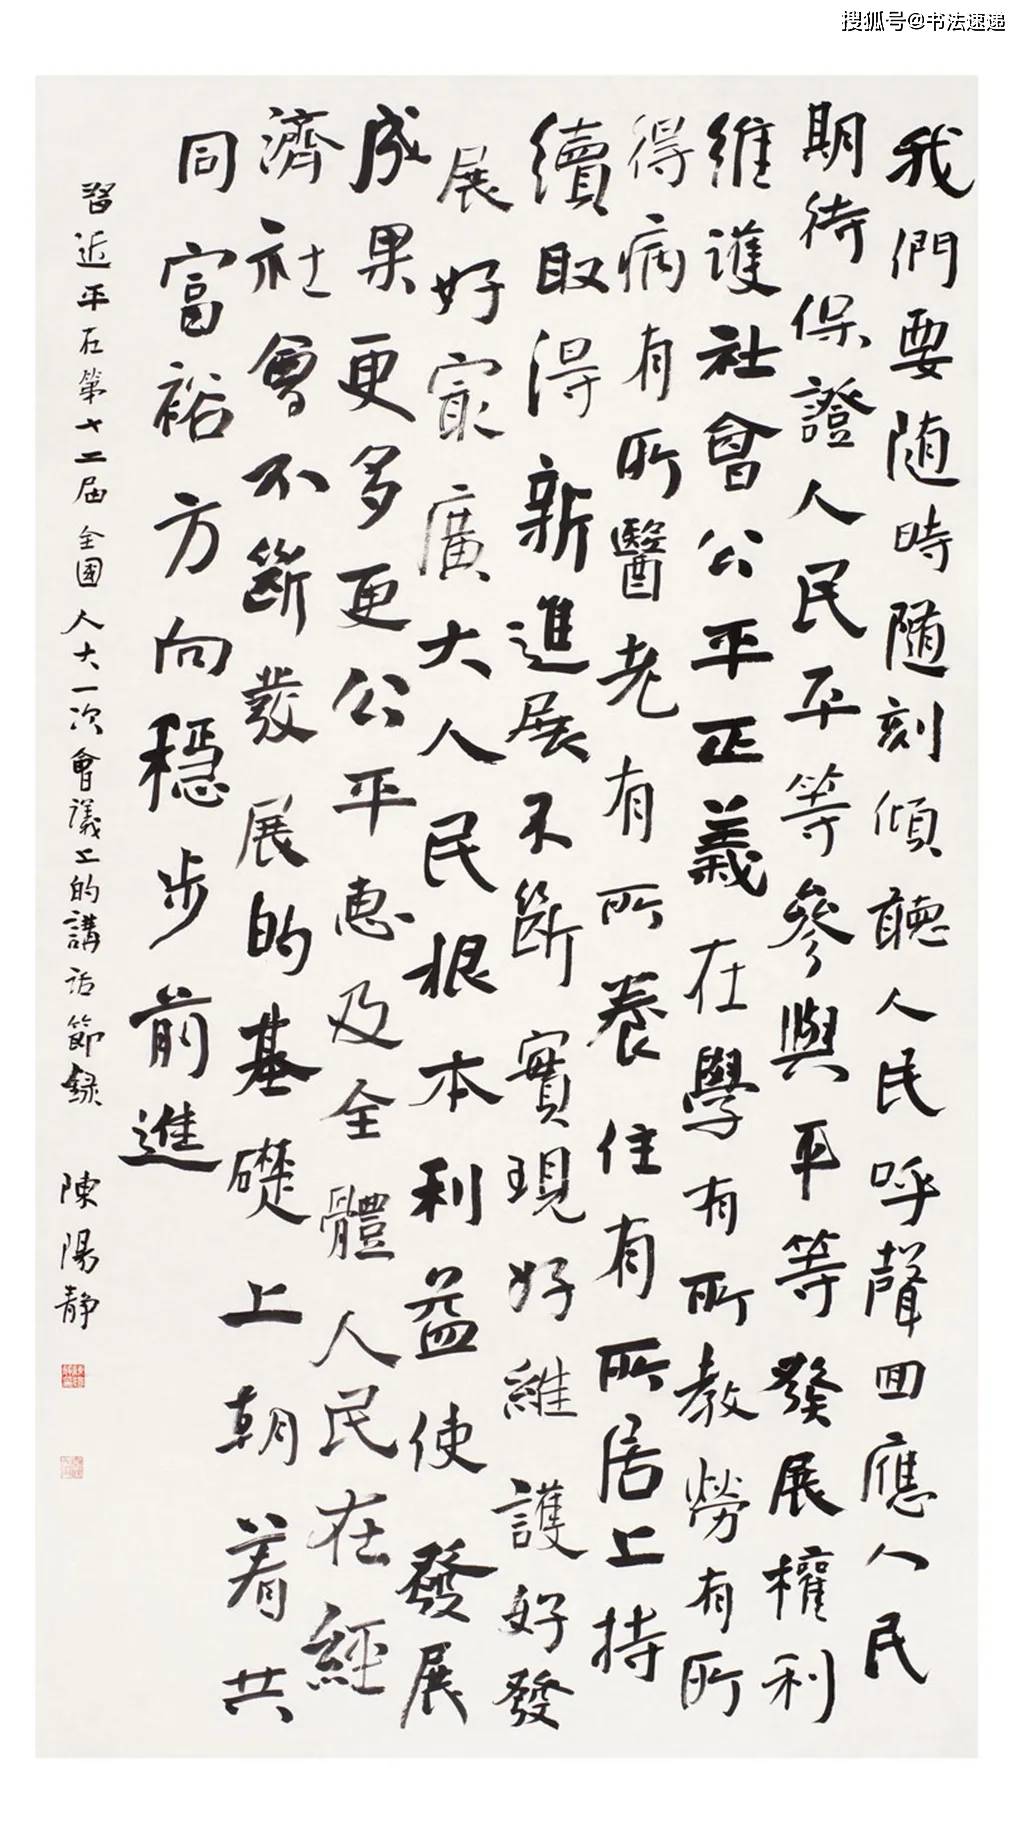 搜狐号@书法速递
我們要随時随刻傾聽人民呼聲回應人民
期待保證人民平等參與平等發展權利
維護社會公平正義在學有所教勞有所
得病有所醫老有所養住有所居上持
續取得新進展不断實現好維護好發
展好㝡廣大人民根本利益使發展
成果更多更公平惠及全體人民在經
濟社會不断發展的基礎上朝着共
同富裕方向穩步前進
習近平在第十二届全國人大一次會議上的講話節録 陳陽静